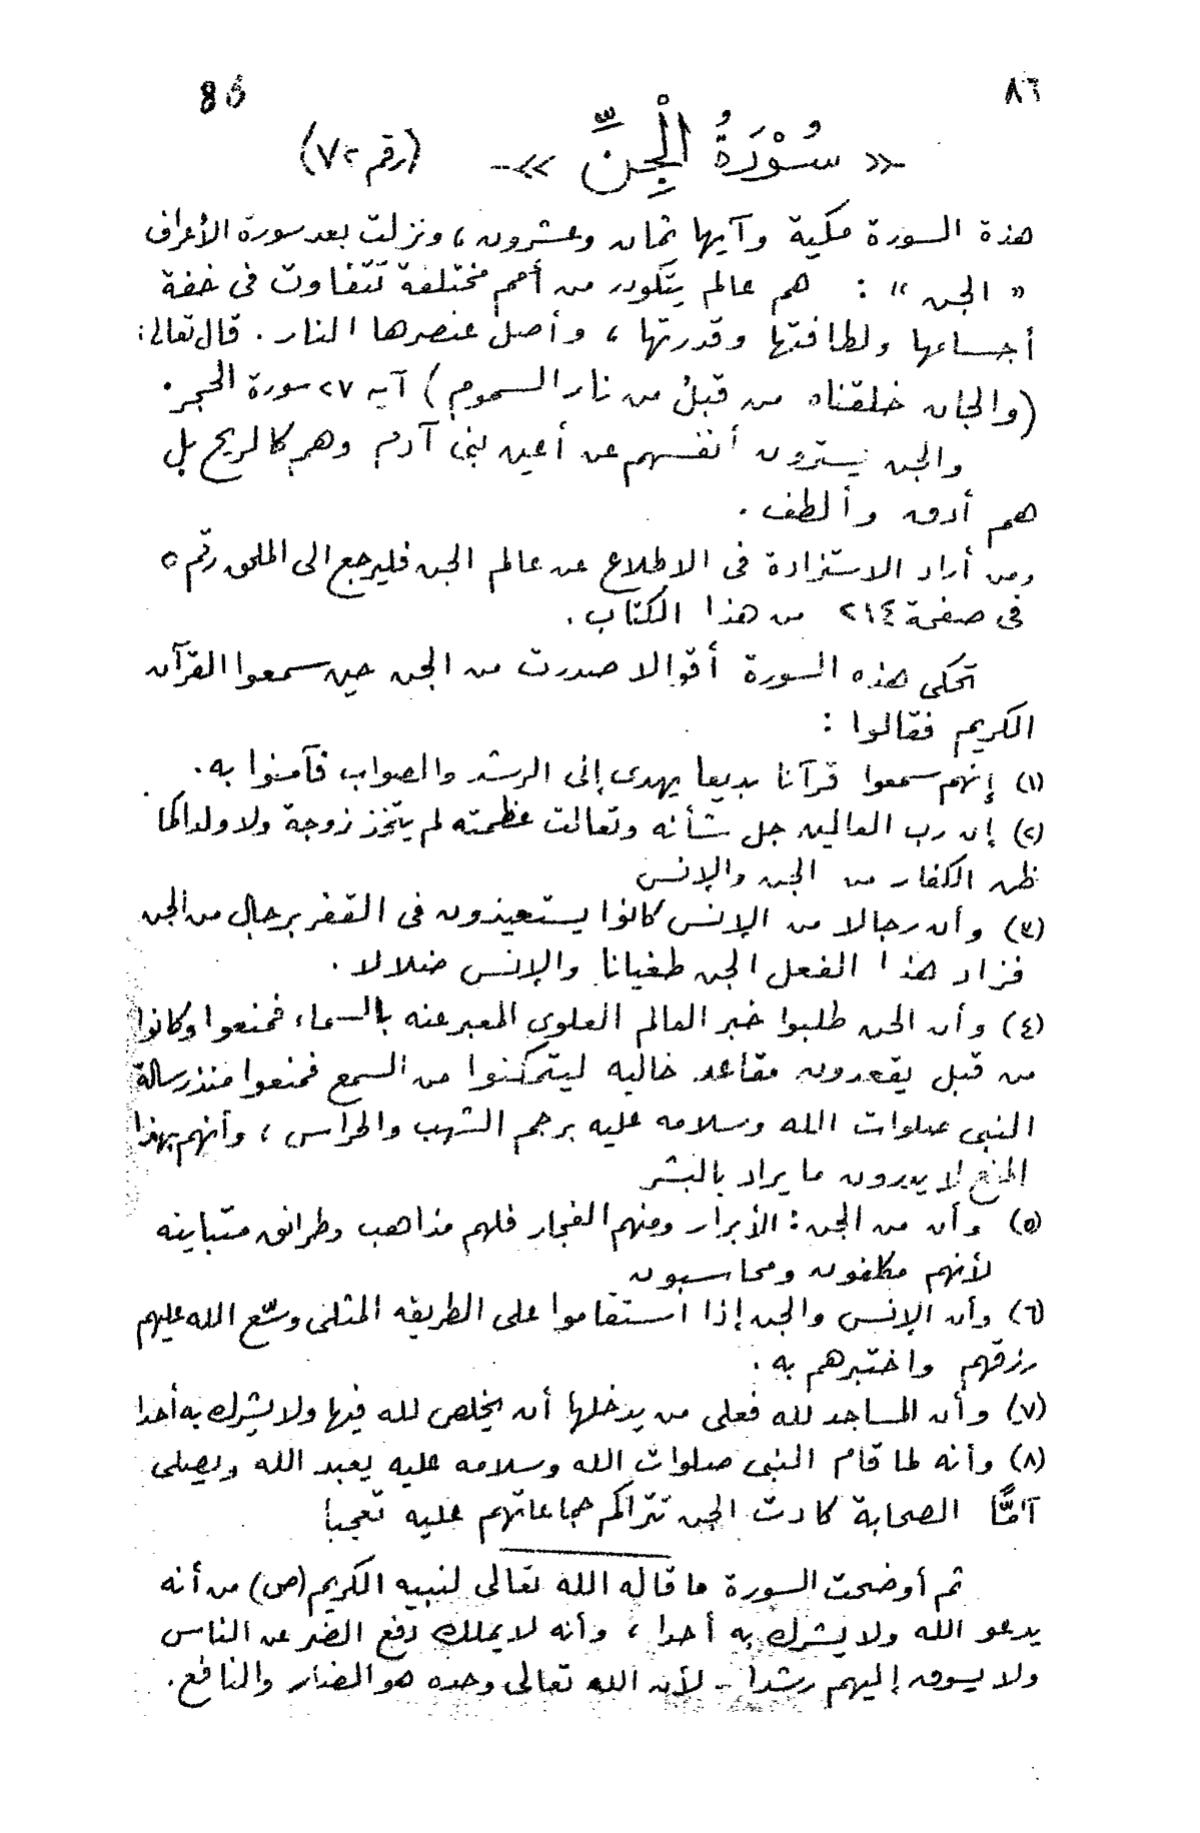 ٨٦ 86
« سُوْرَةُ الْجِنِّ » (رقم ٧٢)
هذة السورة مكية وآيها ثمان وعشرون ، ونزلت بعد سورة الأعراف
" الجن " : هم عالم يتكون من أمم مختلفة تتفاوت فى خفة
أجسامها ولطافتها وقدرتها ، وأصل عنصرها النار . قال تعالى :
(والجان خلقناه من قبلُ من نار السموم ) آيه ٢٧ سورة الحجر .
والجن يسترون أنفسهم عن أعين بنى آدم وهم كالريح بل
هم أدق وألطف .
ومن أراد الاستزادة فى الاطلاع عن عالم الجن فليرجع الى الملحق رقم ٥
فى صفحة ٢١٤ من هذا الكتاب .
تحكى هذه السورة أقوالا صدرت من الجن حين سمعوا القرآن
الكريم فقالوا :
(١) إنهم سمعوا قرآنا بديعا يهدى إلى الرشد والصواب فآمنوا به .
(٢) إن رب العالمين جل شأنه وتعالت عظمته لم يتخذ زوجة ولا ولدا كما
ظن الكفار من الجن والإنس
(٣) وأن رجالا من الإنس كانوا يستعيذون فى القفر برجال من الجن
فزاد هذا الفعل الجن طغيانا والإنس ضلالا .
(٤) وأن الجن طلبوا خبر العالم العلوي المعبر عنه بالسماء فمنعوا وكانوا
من قبل يقعدون مقاعد خاليه ليتمكنوا من السمع فمنعوا منذ رسالة
النبى صلوات الله وسلامه عليه برجم الشهب والحراس ، وأنهم بهذا
المنع لا يدرون ما يراد بالبشر
(٥) وأن من الجن : الأبرار ومنهم الفجار فلهم مذاهب وطرائق متباينه
لأنهم مكلفون ومحاسبون
(٦) وأن الإنس والجن إذا استقاموا على الطريقه المثلى وسّع الله عليهم
رزقهم واختبرهم به .
(٧) وأن المساجد لله فعلى من يدخلها أن يخلص لله فيها ولا يشرك به أحدا
(٨) وأنه لما قام النبى صلوات الله وسلامه عليه يعبد الله ويصلى
آمًّا الصحابة كادت الجن تتراكم جماعاتهم عليه تعجبا
ثم أوضحت السورة ما قاله الله تعالى لنبيه الكريم (ص) من أنه
يدعو الله ولا يشرك به أحدا ، وأنه لا يملك دفع الضر عن الناس
ولا يسوق إليهم رشدا - لأن الله تعالى وحده هو الضار والنافع .